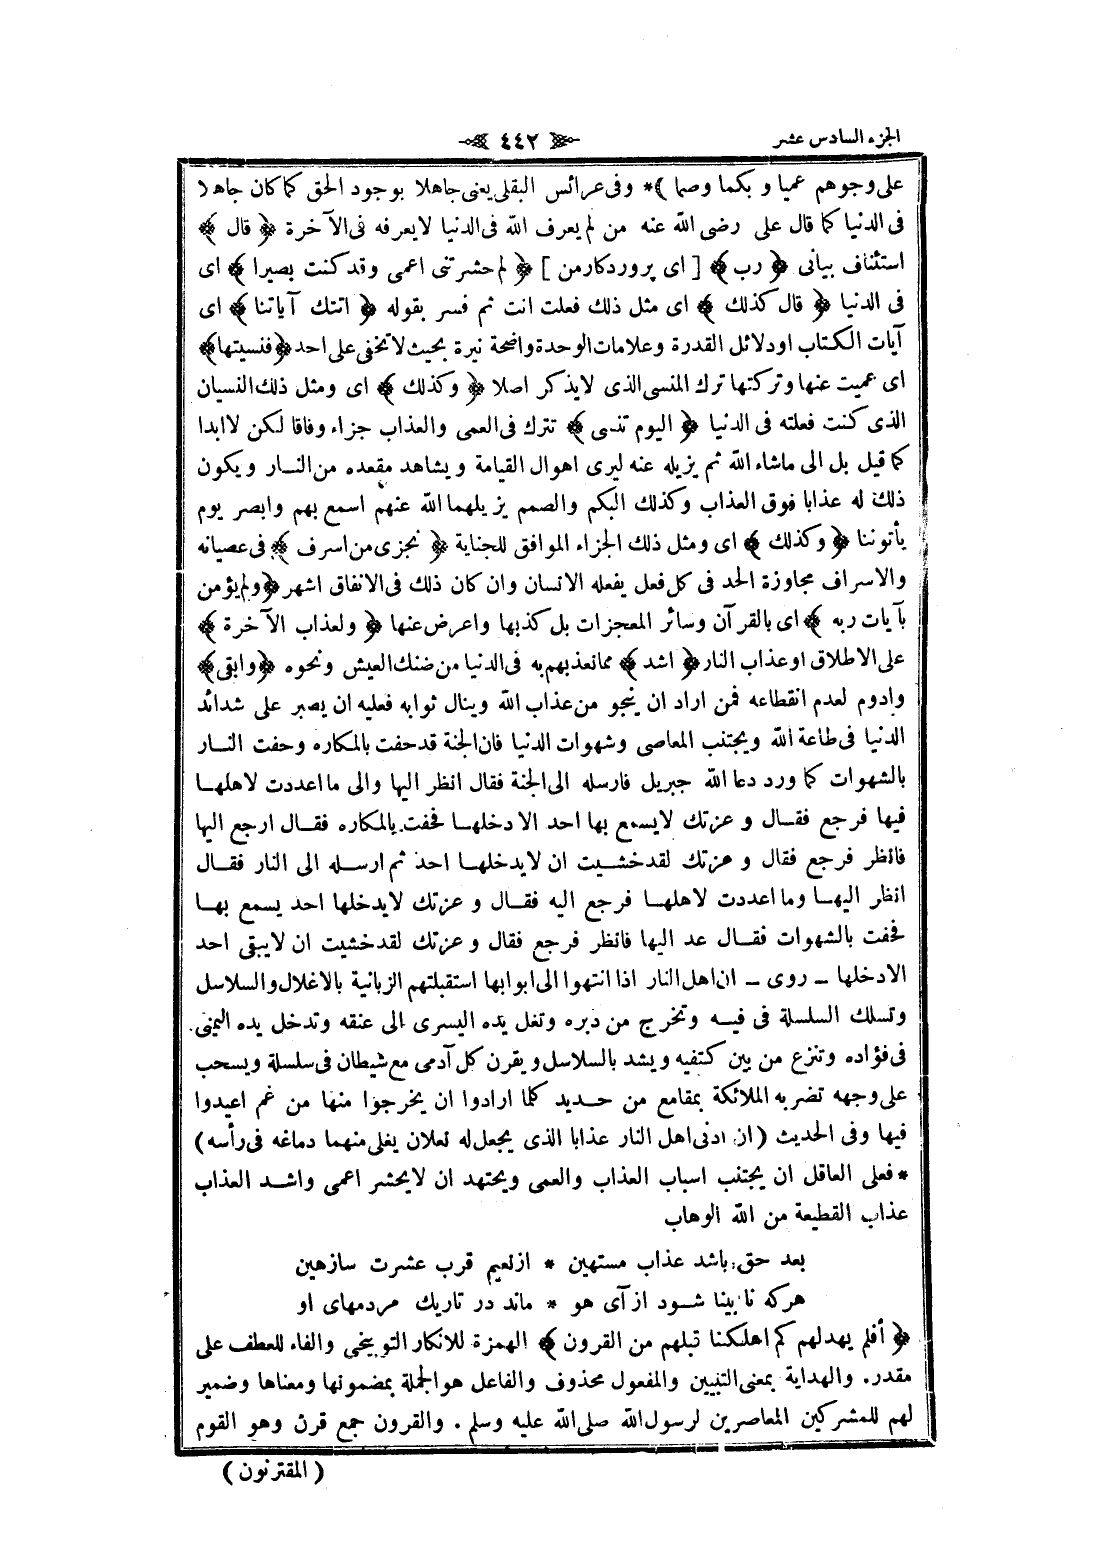 الجزء السادس عشر
٤٤٢
على وجوهم عميا و بكما وصما )* وفى عرائس البقلى يعنى جاهلا بوجود الحق كما كان جاهلا
فى الدنيا كما قال على رضى الله عنه من لم يعرف الله فى الدنيا لايعرفه فى الآخرة ﴿ قال ﴾
استئناف بيانى ﴿ رب ﴾ [ اى پروردكارمن ] ﴿ لم حشرتنى اعمى وقد كنت بصيرا ﴾ اى
فى الدنيا ﴿ قال كذلك ﴾ اى مثل ذلك فعلت انت ثم فسر بقوله ﴿ اتتك آياتنا ﴾ اى
آيات الكتاب اودلائل القدرة وعلامات الوحدة واضحة نيرة بحيث لاتخفى على احد ﴿فنسيتها﴾
اى عميت عنها وتركتها ترك المنسى الذى لايذكر اصلا ﴿ وكذلك ﴾ اى ومثل ذلك النسيان
الذى كنت فعلته فى الدنيا ﴿ اليوم تنسى ﴾ تترك فى العمى والعذاب جزاء وفاقا لكن لاابدا
كما قيل بل الى ماشاء الله ثم يزيله عنه ليرى اهوال القيامة ويشاهد مقعده من النار ويكون
ذلك له عذابا فوق العذاب وكذلك البكم والصمم يزيلهما الله عنهم اسمع بهم وابصر يوم
يأتوننا ﴿ وكذلك ﴾ اى ومثل ذلك الجزاء الموافق للجناية ﴿ نجزى من اسرف ﴾ فى عصيانه
والاسراف مجاوزة الحد فى كل فعل يفعله الانسان وان كان ذلك فى الانفاق اشهر ﴿ولم يؤمن
بآيات ربه ﴾ اى بالقرآن وسائر المعجزات بل كذبها واعرض عنها ﴿ ولعذاب الآخرة ﴾
على الاطلاق اوعذاب النار ﴿ اشد ﴾ ممانعذبهم به فى الدنيا من ضنك العيش ونحوه ﴿وابقى﴾
وادوم لعدم انقطاعه فمن اراد ان ينجو من عذاب الله وينال ثوابه فعليه ان يصبر على شدائد
الدنيا فى طاعة الله ويجتنب المعاصى وشهوات الدنيا فان الجنة قدحفت بالمكاره وحفت النار
بالشهوات كما ورد دعا الله جبريل فارسله الى الجنة فقال انظر اليها والى مااعددت لاهلها
فيها فرجع فقال و عزتك لايسمع بها احد الا دخلها فحفت بالمكاره فقال ارجع اليها
فانظر فرجع فقال و عزتك لقدخشيت ان لايدخلها احد ثم ارسله الى النار فقال
انظر اليها وما اعددت لاهلها فرجع اليه فقال و عزتك لايدخلها احد يسمع بها
فحفت بالشهوات فقال عد اليها فانظر فرجع فقال وعزتك لقدخشيت ان لايبقى احد
الادخلها ـ روى ـ ان اهل النار اذا انتهوا الى ابوابها استقبلتهم الزبانية بالاغلال والسلاسل
وتسلك السلسلة فى فيه وتخرج من دبره وتغل يده اليسرى الى عنقه وتدخل يده اليمنى
فى فؤاده وتنزع من بين كتفيه ويشد بالسلاسل ويقرن كل آدمى مع شيطان فى سلسلة ويسحب
على وجهه تضربه الملائكة بمقامع من حديد كلما ارادوا ان يخرجوا منها من غم اعيدوا
فيها وفى الحديث (ان ادنى اهل النار عذابا الذى يجعل له نعلان يغلى منهما دماغه فى رأسه)
*فعلى العاقل ان يجتنب اسباب العذاب والعمى ويجتهد ان لايحشر اعمى واشد العذاب
عذاب القطيعة من الله الوهاب
بعد حق باشد عذاب مستهين * ازنعيم قرب عشرت سازهين
هركه نابينا شود ازآى هو * ماند در تاريك مردمهاى او
﴿ أفلم يهدلهم كم اهلكنا قبلهم من القرون ﴾ الهمزة للانكار التوبيخى والفاء للعطف على
مقدر. والهداية بمعنى التبيين والمفعول محذوف والفاعل هو الجملة بمضمونها ومعناها وضمير
لهم للمشركين المعاصرين لرسول الله صلى الله عليه وسلم . والقرون جمع قرن وهو القوم
( المقترنون )